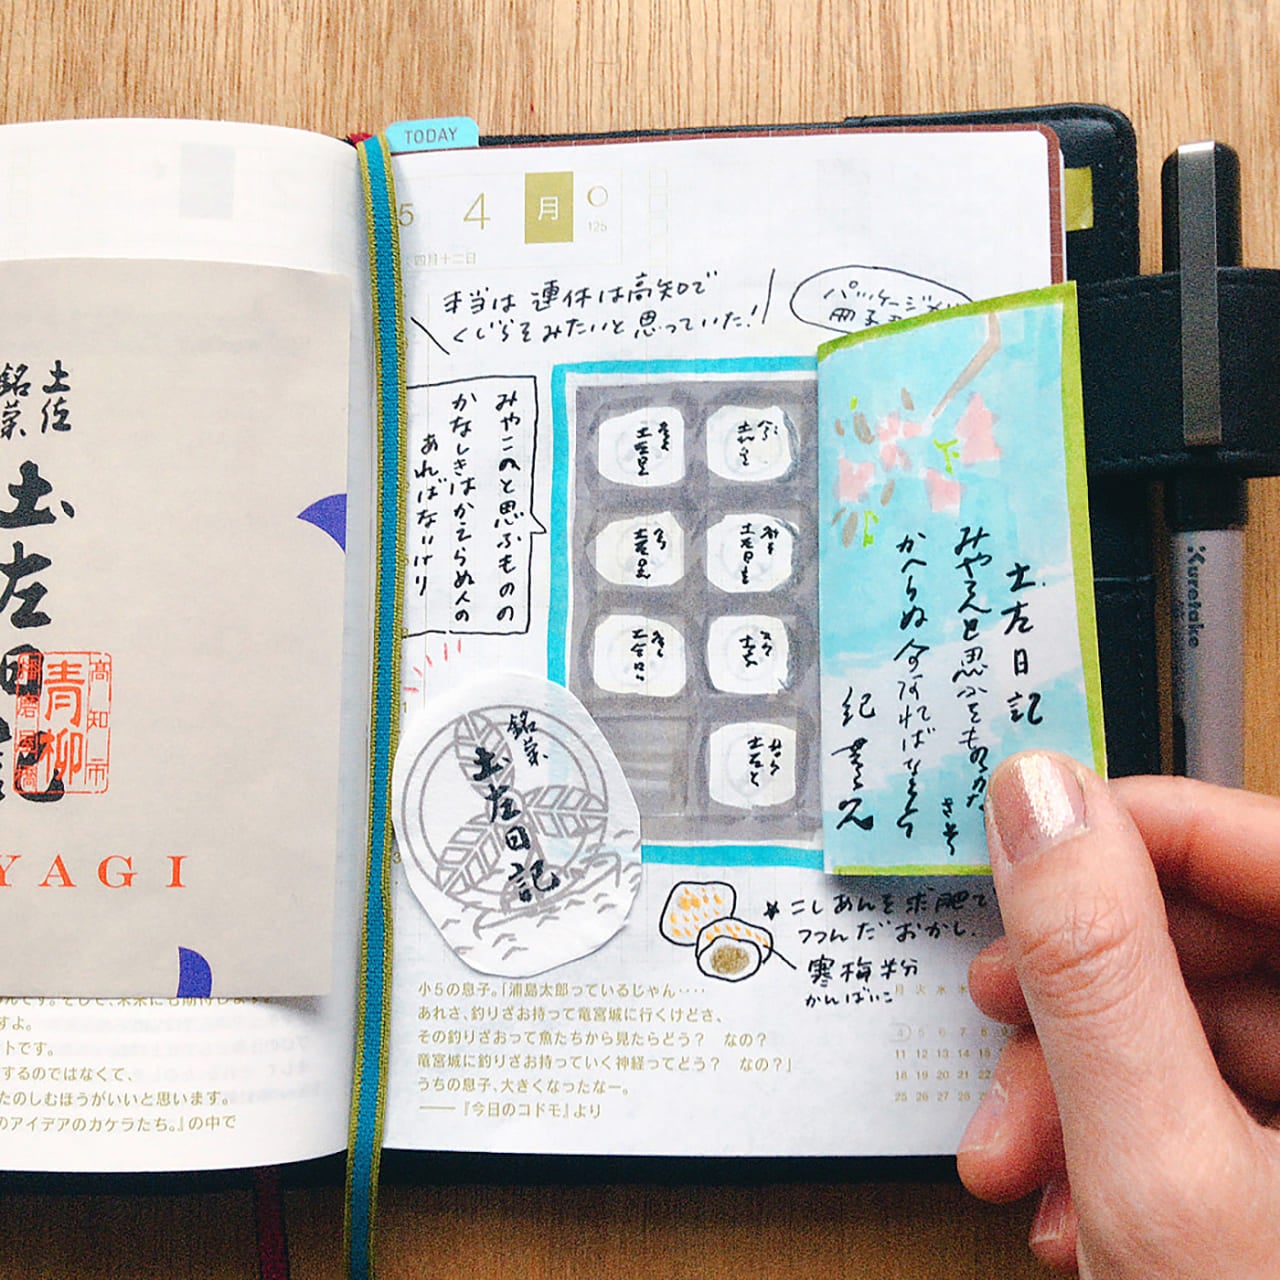 TODAY
5 4 月
125
四月十二日
本当は連休は高知で
くじらをみたいと思っていた!
パッケージ
冊子
みやこのと思ふものの
かなしきはかへらぬ人の
あればなりけり
土佐
銘菓
土左日記
高知市
青柳
播磨屋橋
YAGI
銘菓
土左日記
土左日記
みやこへと思ふをものの
かへらぬ人のあればなりけり
紀貫之
こしあんを求肥で
つつんだおかし。
寒梅粉
かんばいこ
小5の息子。「浦島太郎っているじゃん‥‥
あれさ、釣りざお持って竜宮城に行くけどさ、
その釣りざおって魚たちから見たらどう？ なの？
竜宮城に釣りざお持っていく神経ってどう？ なの？」
うちの息子、大きくなったなー。
――『今日のコドモ』より
月 火 水 木
4 5 6 7 8 9
11 12 13 14 15
18 19 20 21 22
25 26 27 28
すよ。
ートです。
するのではなくて、
たのしむほうがいいと思います。
のアイデアのカケラたち。』の中で
Kuretake